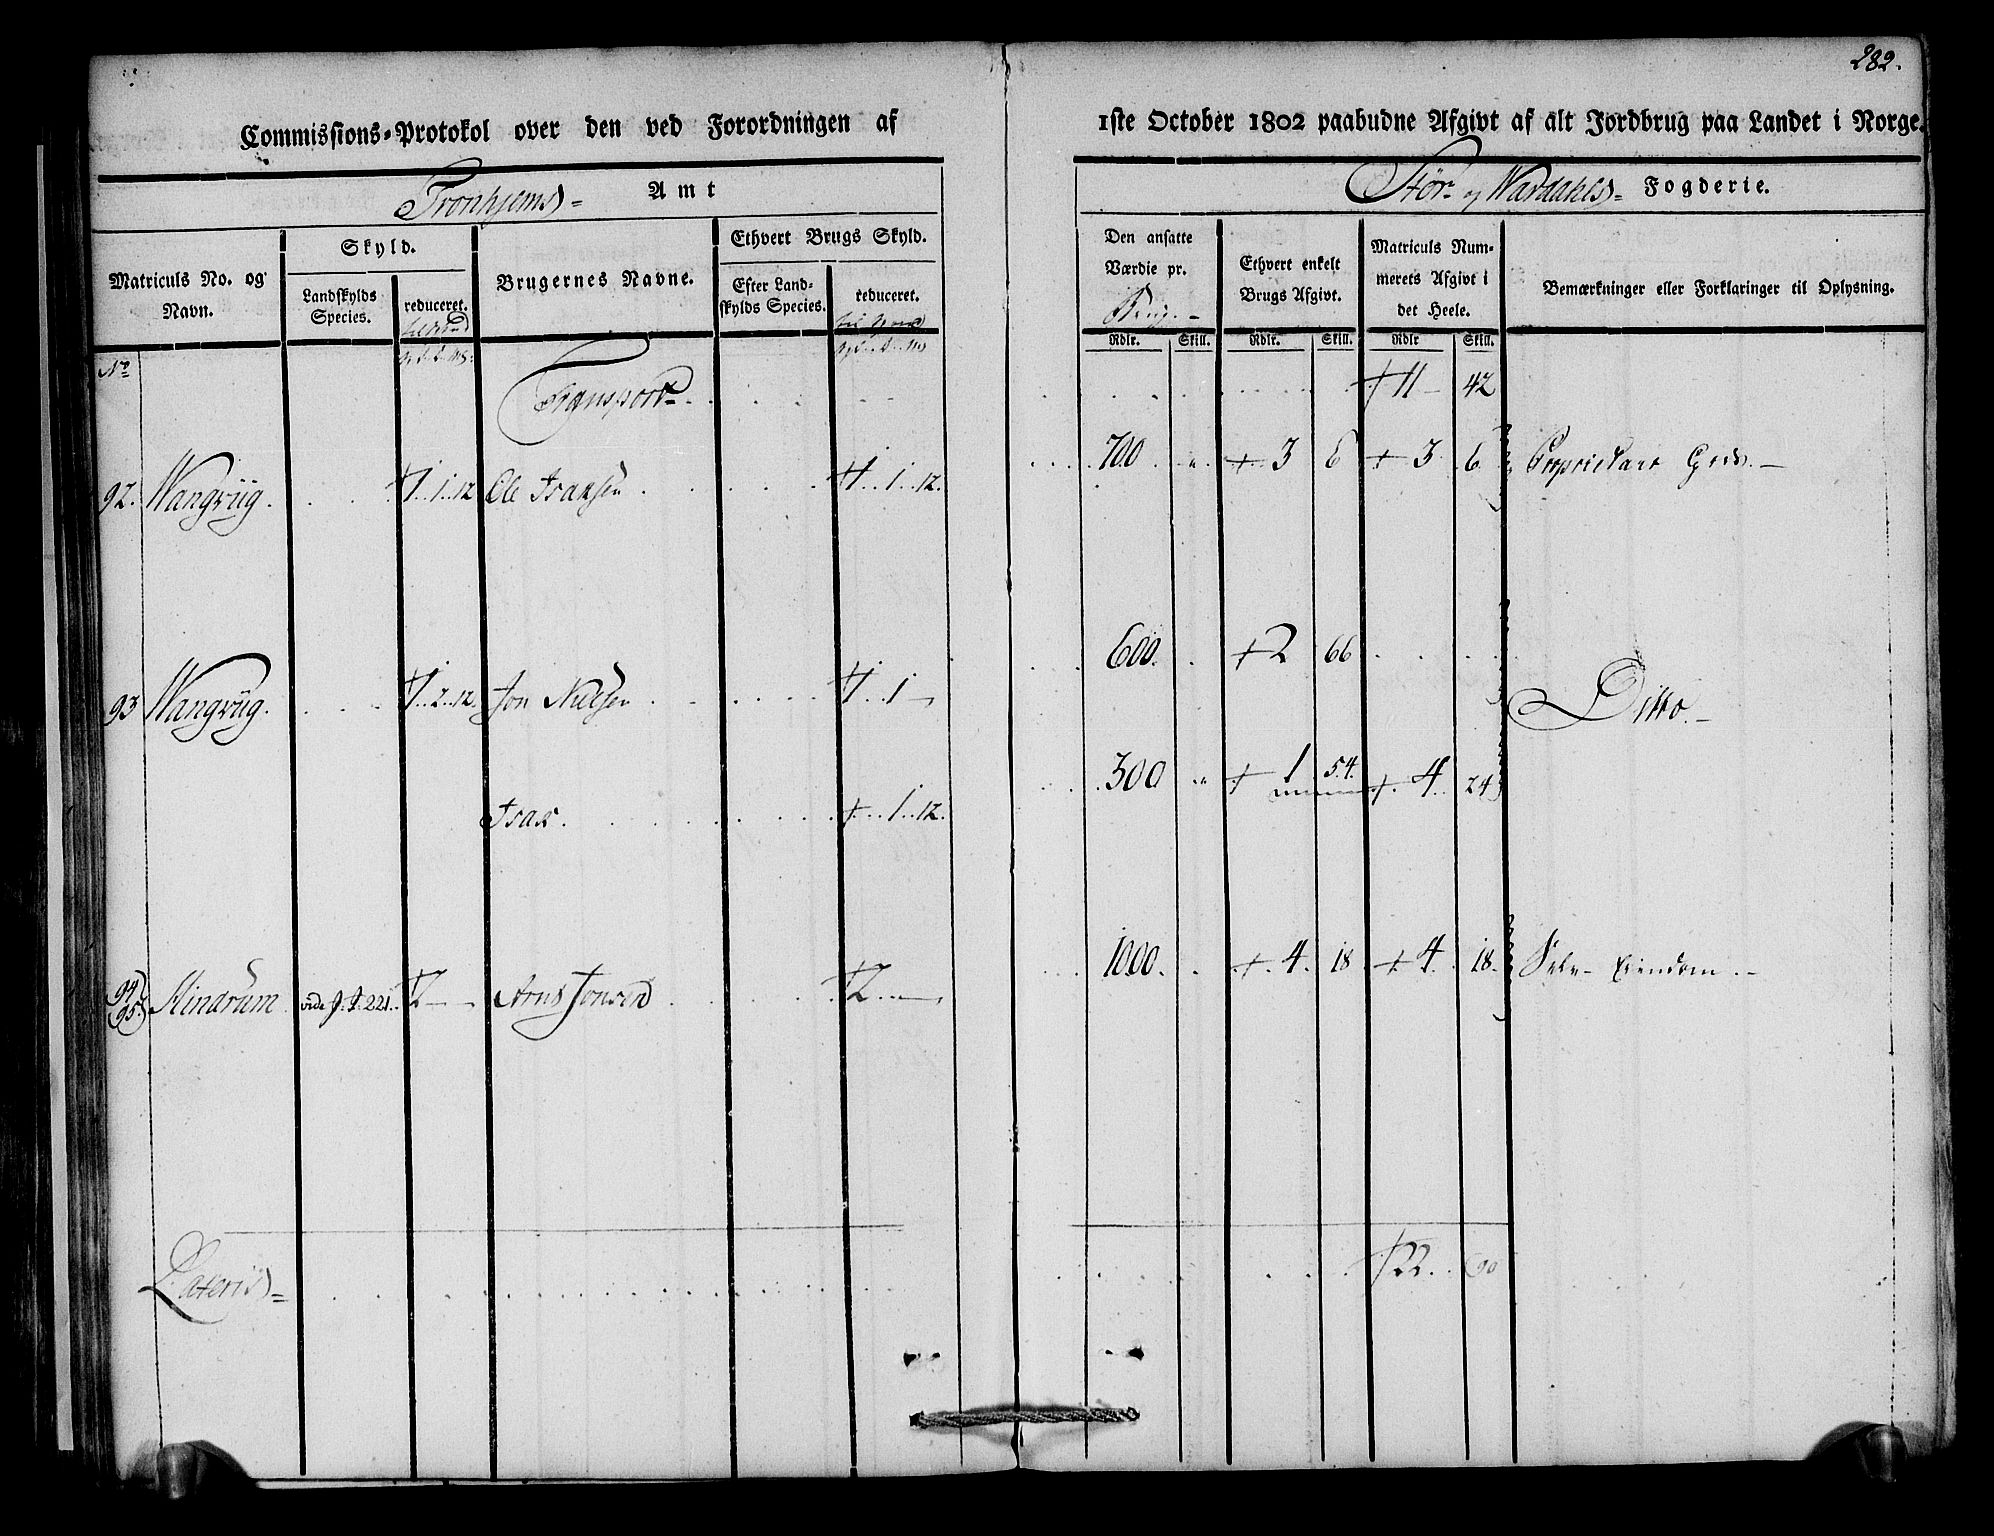 282.
Commissions-Protokol over den ved Forordningen af 1ste October 1802 paabudne Afgivt af alt Jordbrug paa Landet i Norge.
Tronhjems= Amt
Stör og Wardahls= Fogderie.
Matriculs No. og Navn.
Skyld.
Landskylds Species.
reduceret.
Brugernes Navne.
Ethvert Brugs Skyld.
Efter Landskylds Species.
reduceret.
Den ansatte Værdie pr. Brug.
Ethvert enkelt Brugs Afgivt.
Matriculs Nummerets Afgivt i det Heele.
Bemærkninger eller Forklaringer til Oplysning.
Rdlr. Skill. Rdlr. Skill. Rdlr Skill.
No
Transport 11 42
92. Wangviig. 1..1..12 Ole Isaksen 1..1..12. 700 3 6 3 6 Proprietair
93 Wangviig. 1..2..12. Jon Nielsen 1..1 600. 2 66 Ditto.
Isak. 1..12. 300 1 54. 4 24
94 95. Mindrum vide J. J. 221. 2 Arnt Jonsen 2 1000. 4. 18 4. 18. Selv Eiendom.
Lateris= 22. 90